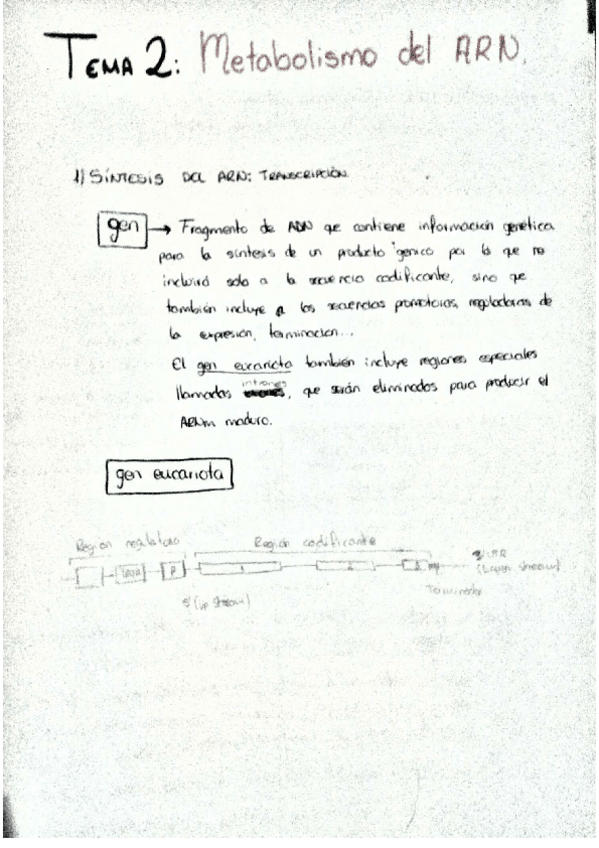 TEMA 2: Metabolismo del ARN.
1) SÍNTESIS DEL ARN: TRANSCRIPCIÓN
gen → Fragmento de ADN que contiene información genética
para la síntesis de un producto génico por lo que no
incluirá solo a la secuencia codificante, sino que
también incluye a las secuencias promotoras, reguladoras de
la expresión, terminacion...
El gen eucariota también incluye regiones especiales
llamadas intrones, que serán eliminados para producir el
ARNm maduro.
gen eucariota
Región reguladora Región codificante
P 1 2 3 3' UTR
(Down stream)
5' (up stream) Terminador